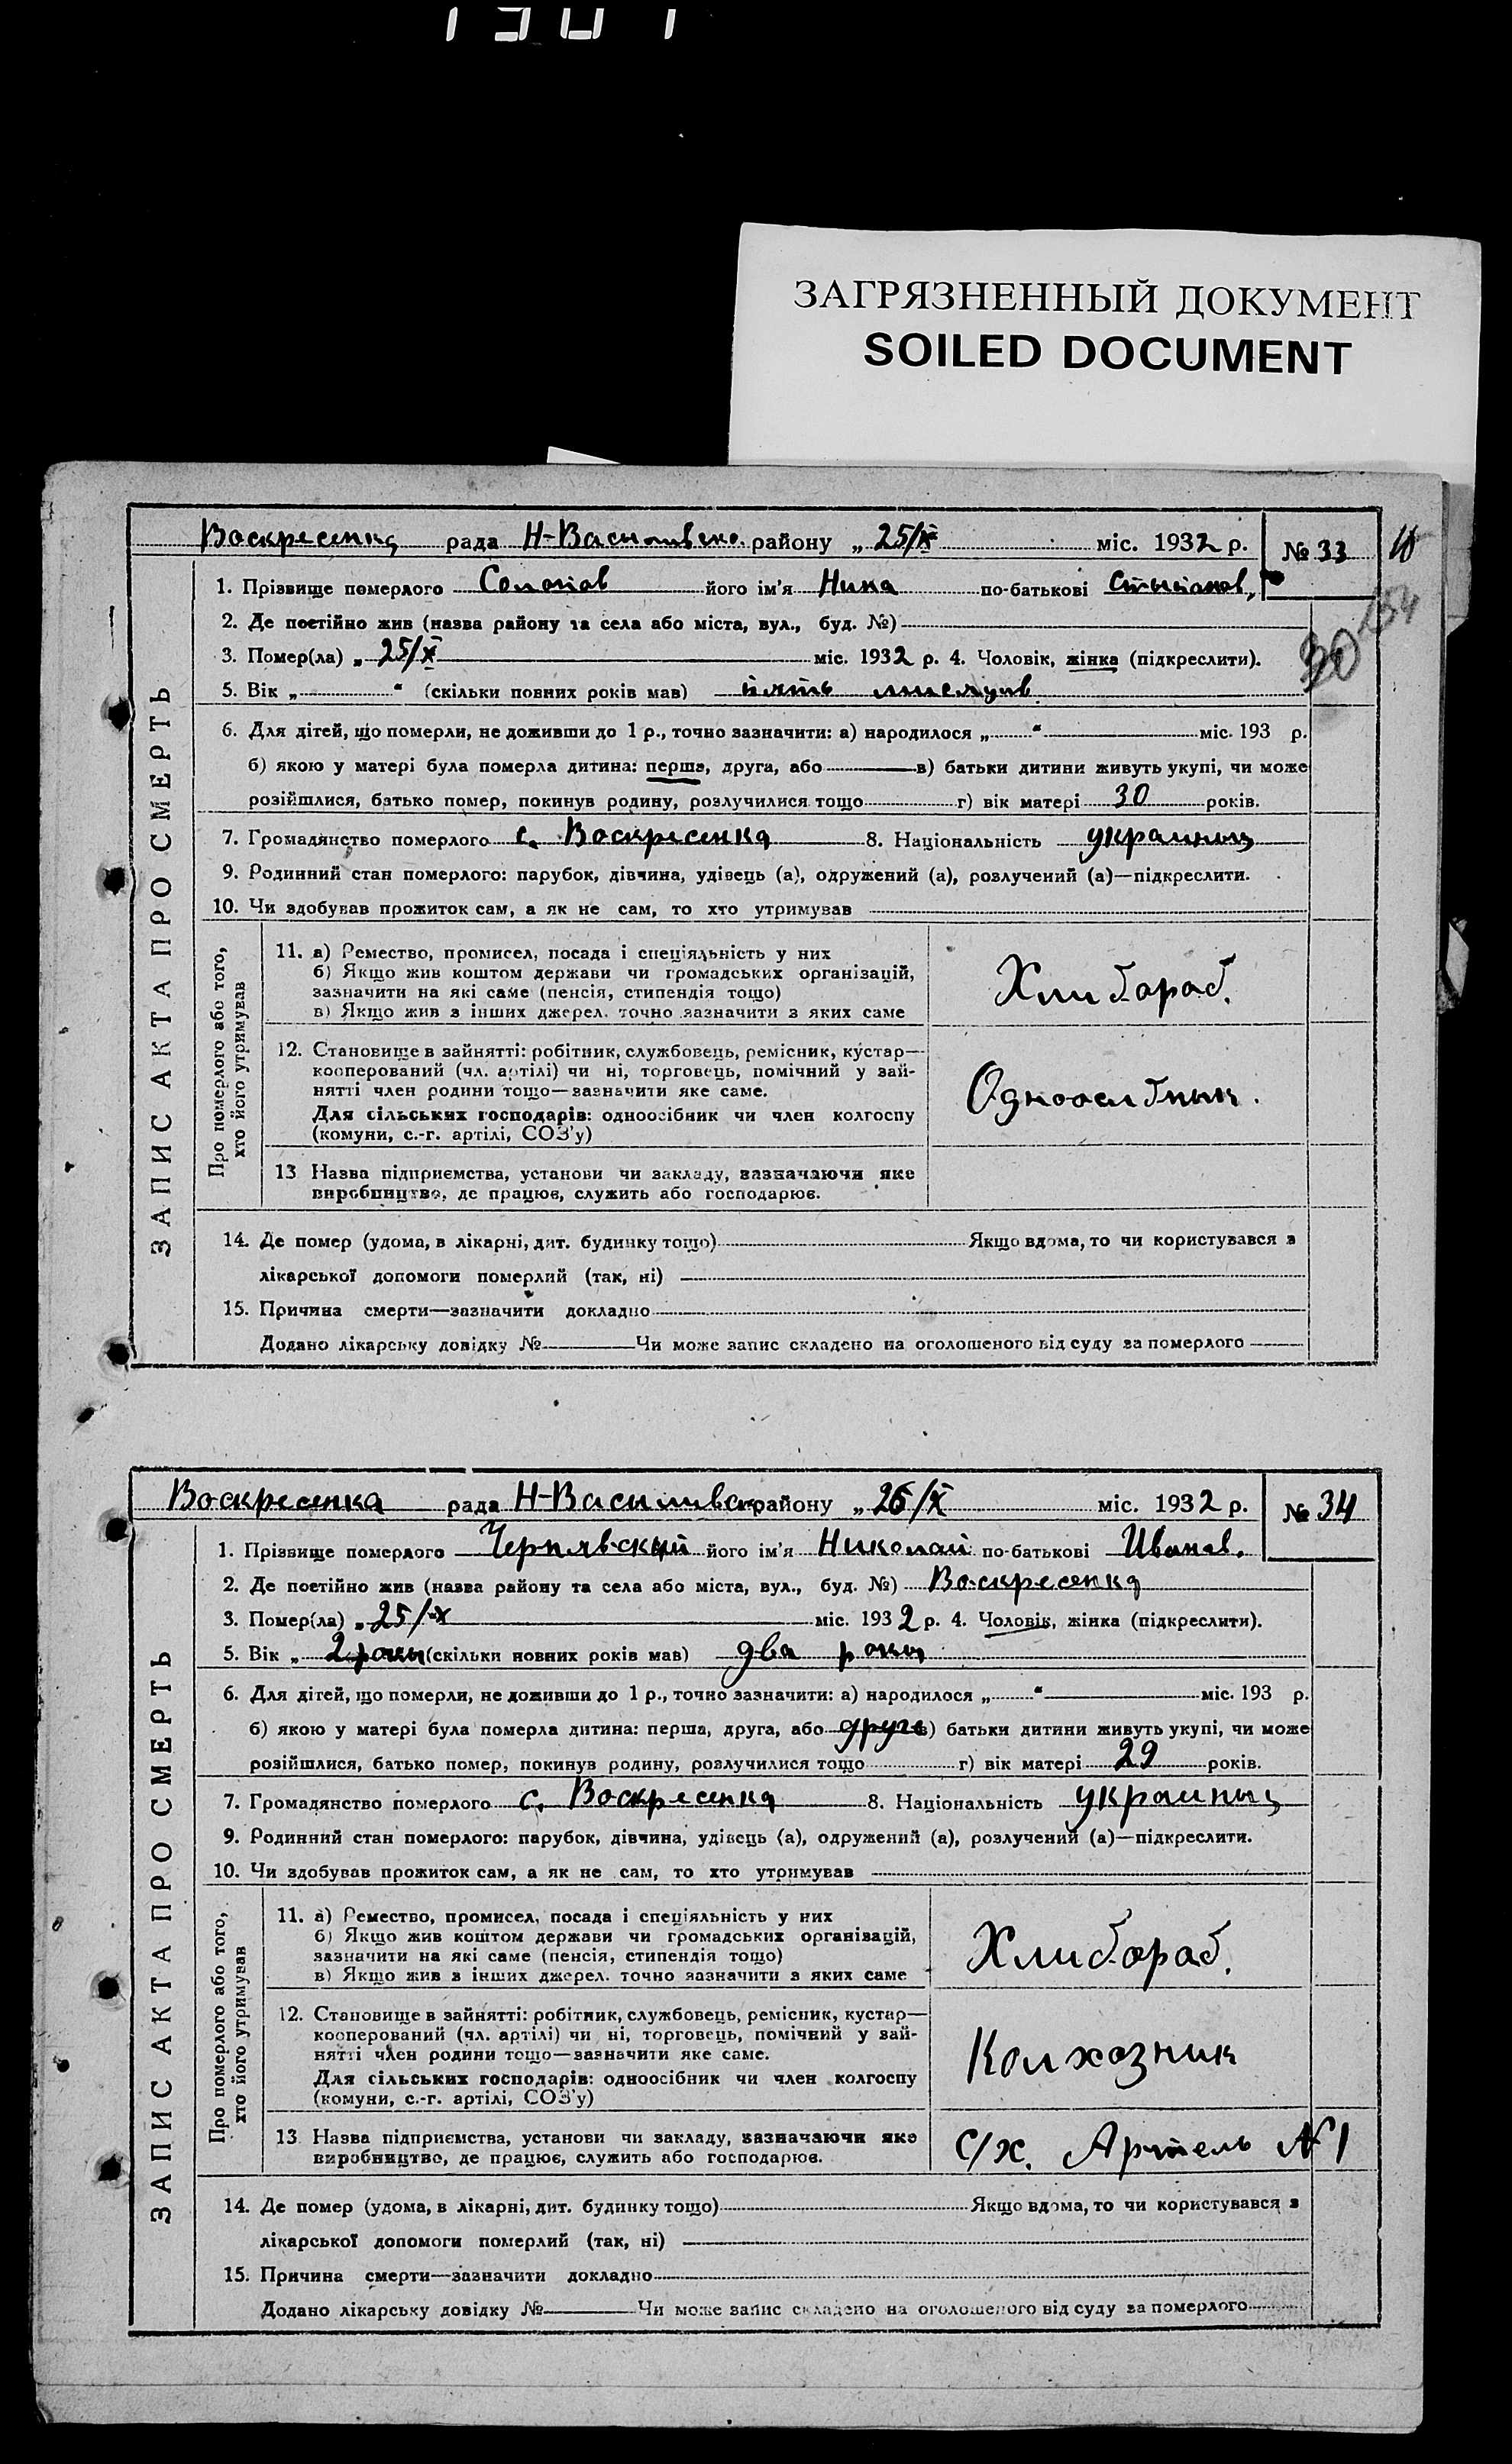 ЗАГРЯЗНЕННЫЙ ДОКУМЕНТ
SOILED DOCUMENT
Воскресенка рада Н-Василивско району „ 25/X міс. 1932 р. № 33
1. Прізвище померлого його ім'я Нина по-батькові
2. Де постійно жив (назва району та села або міста, вул., буд. №)
3. Помер(ла) „ 25/X міс. 1932 р. 4. Чоловік, жінка (підкреслити).
30
5. Вік „ “ (скільки повних років мав) пять мисяцив
6. Для дітей, що померли, не доживши до 1 р., точно зазначити: а) народилося „ “ міс. 193 р.
б) якою у матері була померла дитина: перша, друга, або в) батьки дитини живуть укупі, чи може
розійшлися, батько помер, покинув родину, розлучилися тощо г) вік матері 30 років.
7. Громадянство померлого с. Воскресенка 8. Національність украиныц
9. Родинний стан померлого: парубок, дівчина, удівець (а), одружений (а), розлучений (а)—підкреслити.
10. Чи здобував прожиток сам, а як не сам, то хто утримував
ЗАПИС АКТА ПРО СМЕРТЬ
Про померлого або того,
хто його утримував
11. а) Ремество, промисел, посада і спеціяльність у них
б) Якщо жив коштом держави чи громадських організацій,
зазначити на які саме (пенсія, стипендія тощо)
в) Якщо жив з інших джерел. точно зазначити з яких саме
Хлибороб.
12. Становище в зайнятті: робітник, службовець, ремісник, кустар—
кооперований (чл. артілі) чи ні, торговець, помічний у зай-
нятті член родини тощо—зазначити яке саме.
Для сільських господарів: одноосібник чи член колгоспу
(комуни, с.-г. артілі, СОЗ'у)
Одноосибнык.
13 Назва підприємства, установи чи закладу, зазначаючи яке
виробництво, де працює, служить або господарює.
14. Де помер (удома, в лікарні, дит. будинку тощо) Якщо вдома, то чи користувався з
лікарської допомоги померлий (так, ні)
15. Причина смерти—зазначити докладно
Додано лікарську довідку № Чи може запис складено на оголошеного від суду за померлого
Воскресенка рада Н-Василивско району „ 26/X міс. 1932 р. № 34
1. Прізвище померлого Чернявский його ім'я Николай по-батькові Иванов.
2. Де постійно жив (назва району та села або міста, вул., буд. №) Воскресенка
3. Помер(ла) „ 25/X міс. 1932 р. 4. Чоловік, жінка (підкреслити).
5. Вік „ 2 рокы (скільки повних років мав) два рокы
6. Для дітей, що померли, не доживши до 1 р., точно зазначити: а) народилося „ “ міс. 193 р.
б) якою у матері була померла дитина: перша, друга, або друга в) батьки дитини живуть укупі, чи може
розійшлися, батько помер, покинув родину, розлучилися тощо г) вік матері 29 років.
7. Громадянство померлого с. Воскресенка 8. Національність украиныц
9. Родинний стан померлого: парубок, дівчина, удівець (а), одружений (а), розлучений (а)—підкреслити.
10. Чи здобував прожиток сам, а як не сам, то хто утримував
ЗАПИС АКТА ПРО СМЕРТЬ
Про померлого або того,
хто його утримував
11. а) Ремество, промисел, посада і спеціяльність у них
б) Якщо жив коштом держави чи громадських організацій,
зазначити на які саме (пенсія, стипендія тощо)
в) Якщо жив з інших джерел. точно зазначити з яких саме
Хлибороб.
12. Становище в зайнятті: робітник, службовець, ремісник, кустар—
кооперований (чл. артілі) чи ні, торговець, помічний у зай-
нятті член родини тощо—зазначити яке саме.
Для сільських господарів: одноосібник чи член колгоспу
(комуни, с.-г. артілі, СОЗ'у)
Колхозник
13 Назва підприємства, установи чи закладу, зазначаючи яке
виробництво, де працює, служить або господарює.
С/х. Артель № 1
14. Де помер (удома, в лікарні, дит. будинку тощо) Якщо вдома, то чи користувався з
лікарської допомоги померлий (так, ні)
15. Причина смерти—зазначити докладно
Додано лікарську довідку № Чи може запис складено на оголошеного від суду за померлого